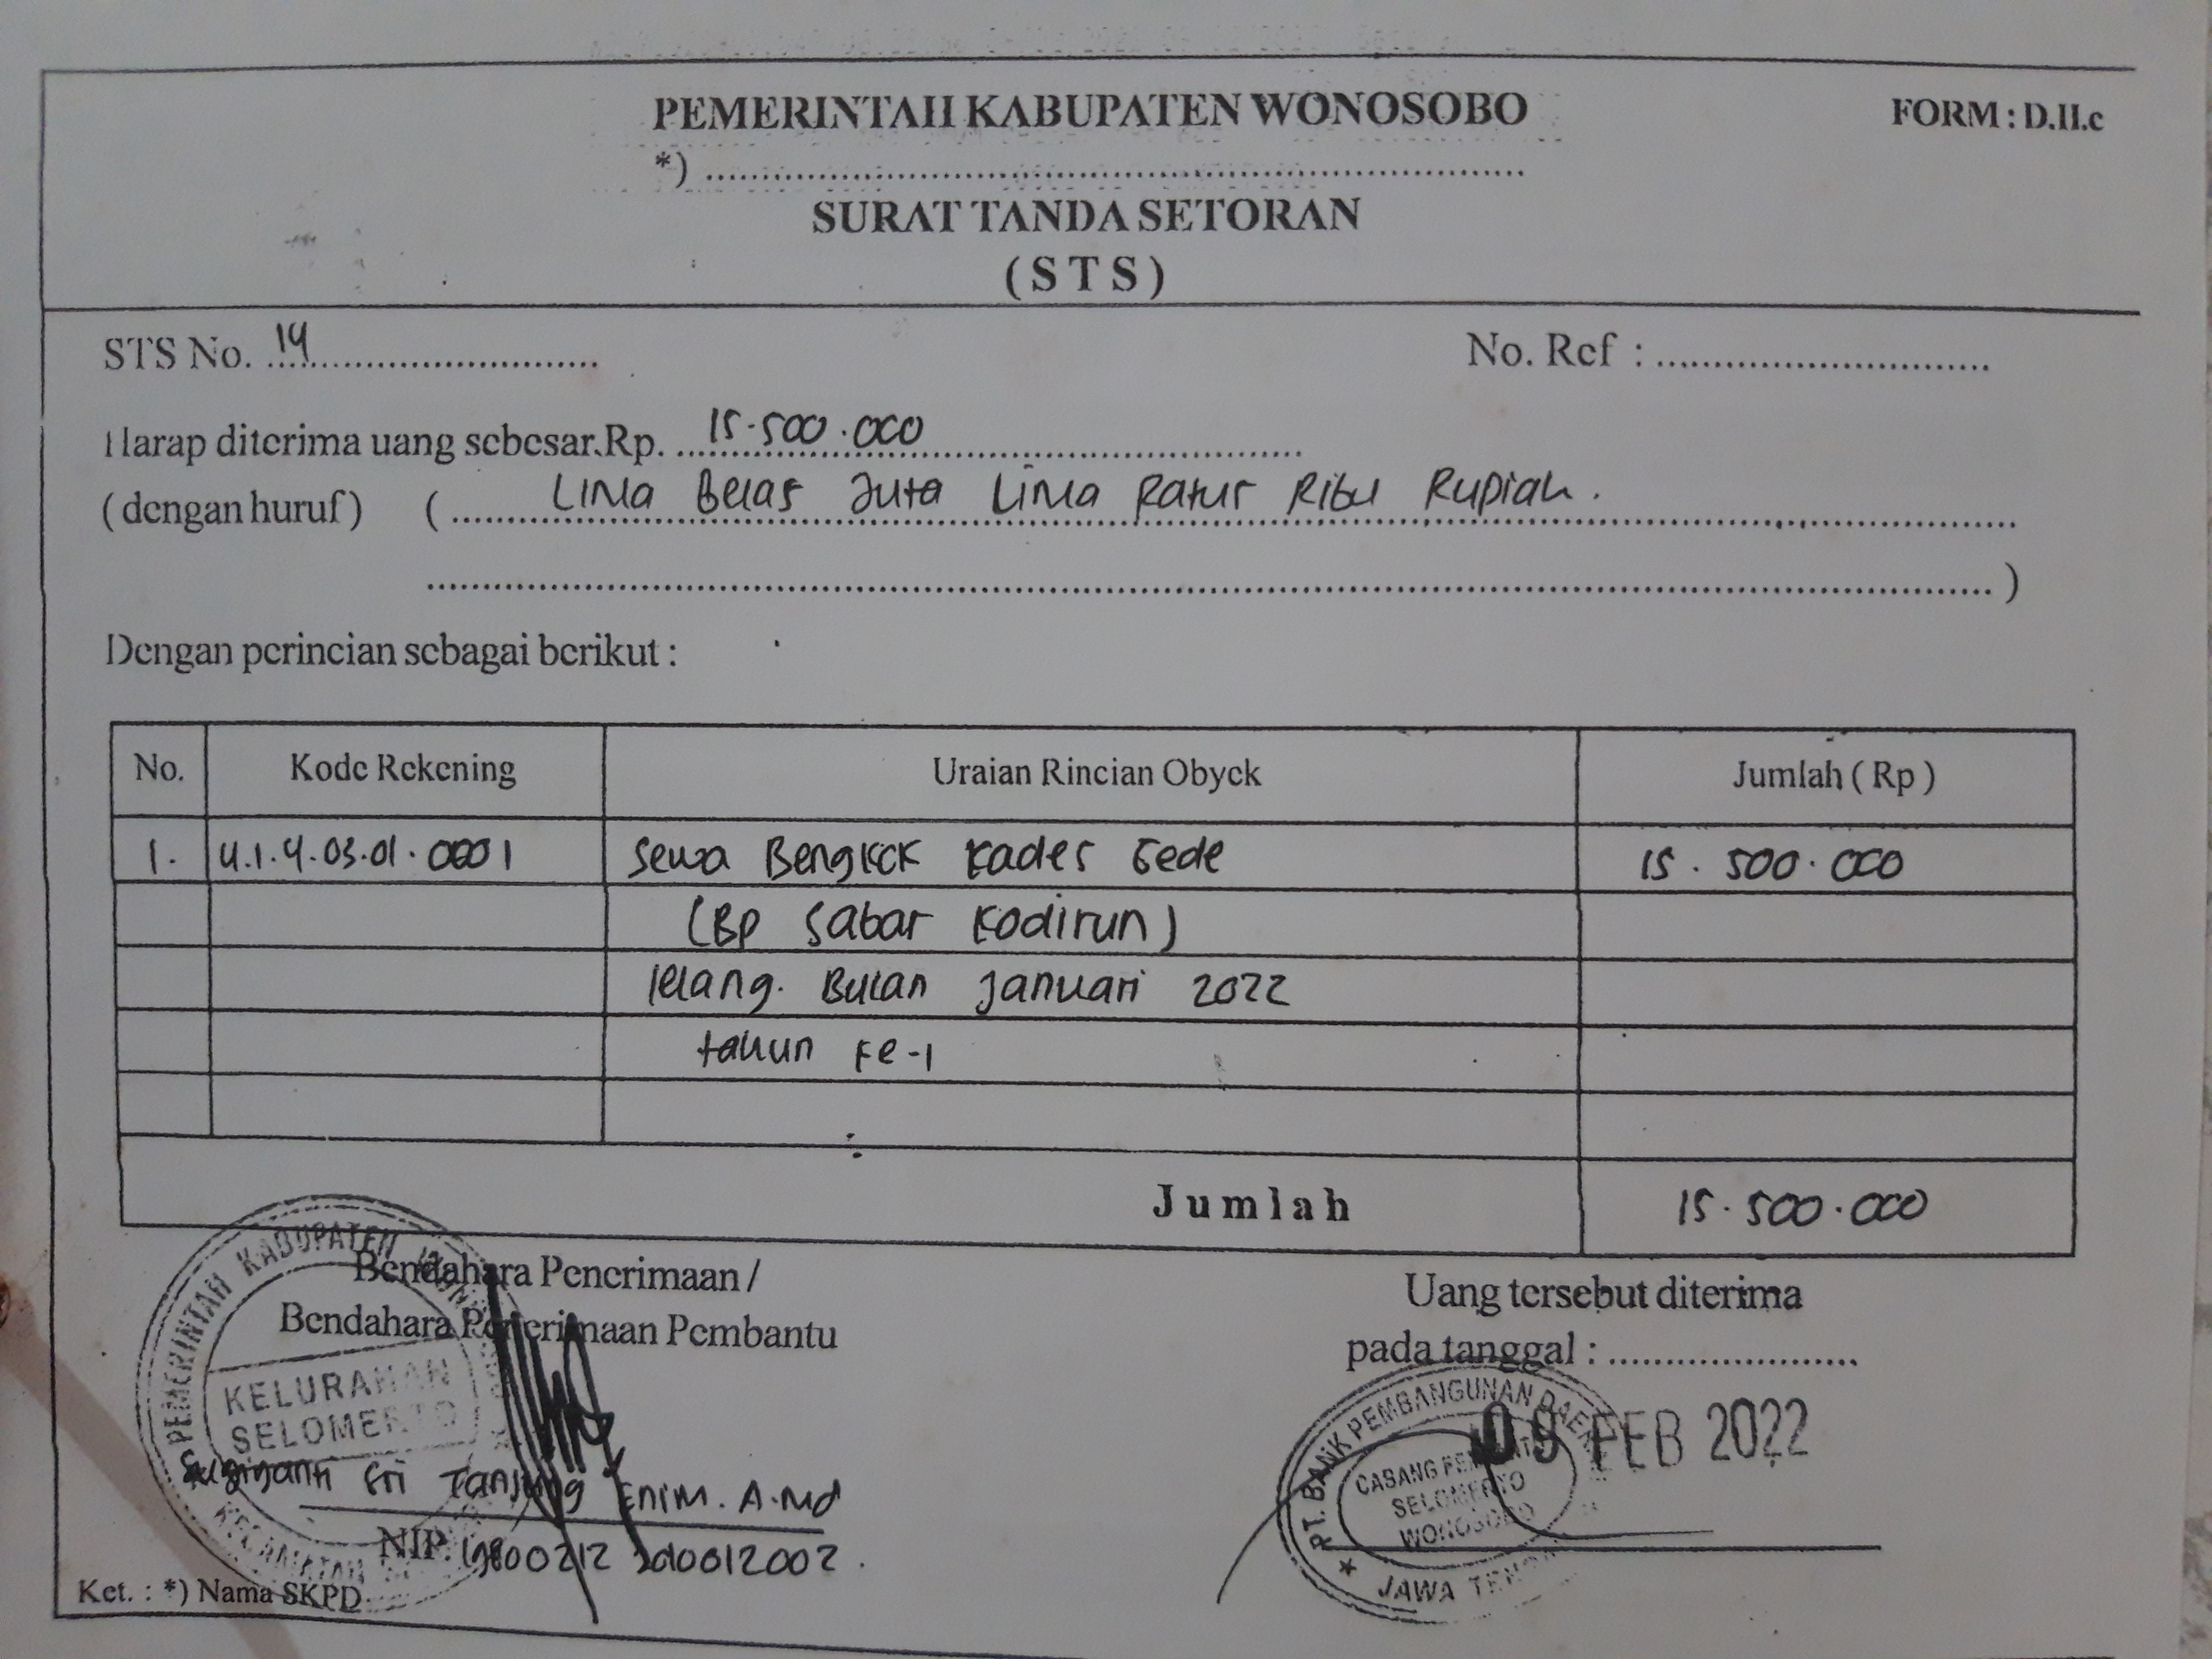 PEMERINTAH KABUPATEN WONOSOBO
FORM : D.II.c
*) ..........
SURAT TANDA SETORAN
( S T S )
STS No. 14
No. Ref : ..........
Harap diterima uang sebesar Rp. 15.500.000
( dengan huruf ) ( Lima Belas Juta Lima Ratus Ribu Rupiah.
.......... )
Dengan perincian sebagai berikut :
No. Kode Rekening Uraian Rincian Obyek Jumlah ( Rp )
1. 4.1.4.03.01.0001 Sewa Bengkok Kades Gede 15.500.000
(BP Sabar Kodirun)
lelang. Bulan Januari 2022
tahun ke-1
Jumlah 15.500.000
Bendahara Penerimaan /
Bendahara Penerimaan Pembantu
Uang tersebut diterima
pada tanggal : ..........
PEMERINTAH KABUPATEN
KELURAHAN
SELOMERTO
PT. BANK PEMBANGUNAN DAERAH
09 FEB 2022
CABANG
SELOMERTO
WONOSOBO
JAWA TENGAH
Sri Tanjung Enim. A.Md
NIP. 19800212 2010012002.
Ket. : *) Nama SKPD